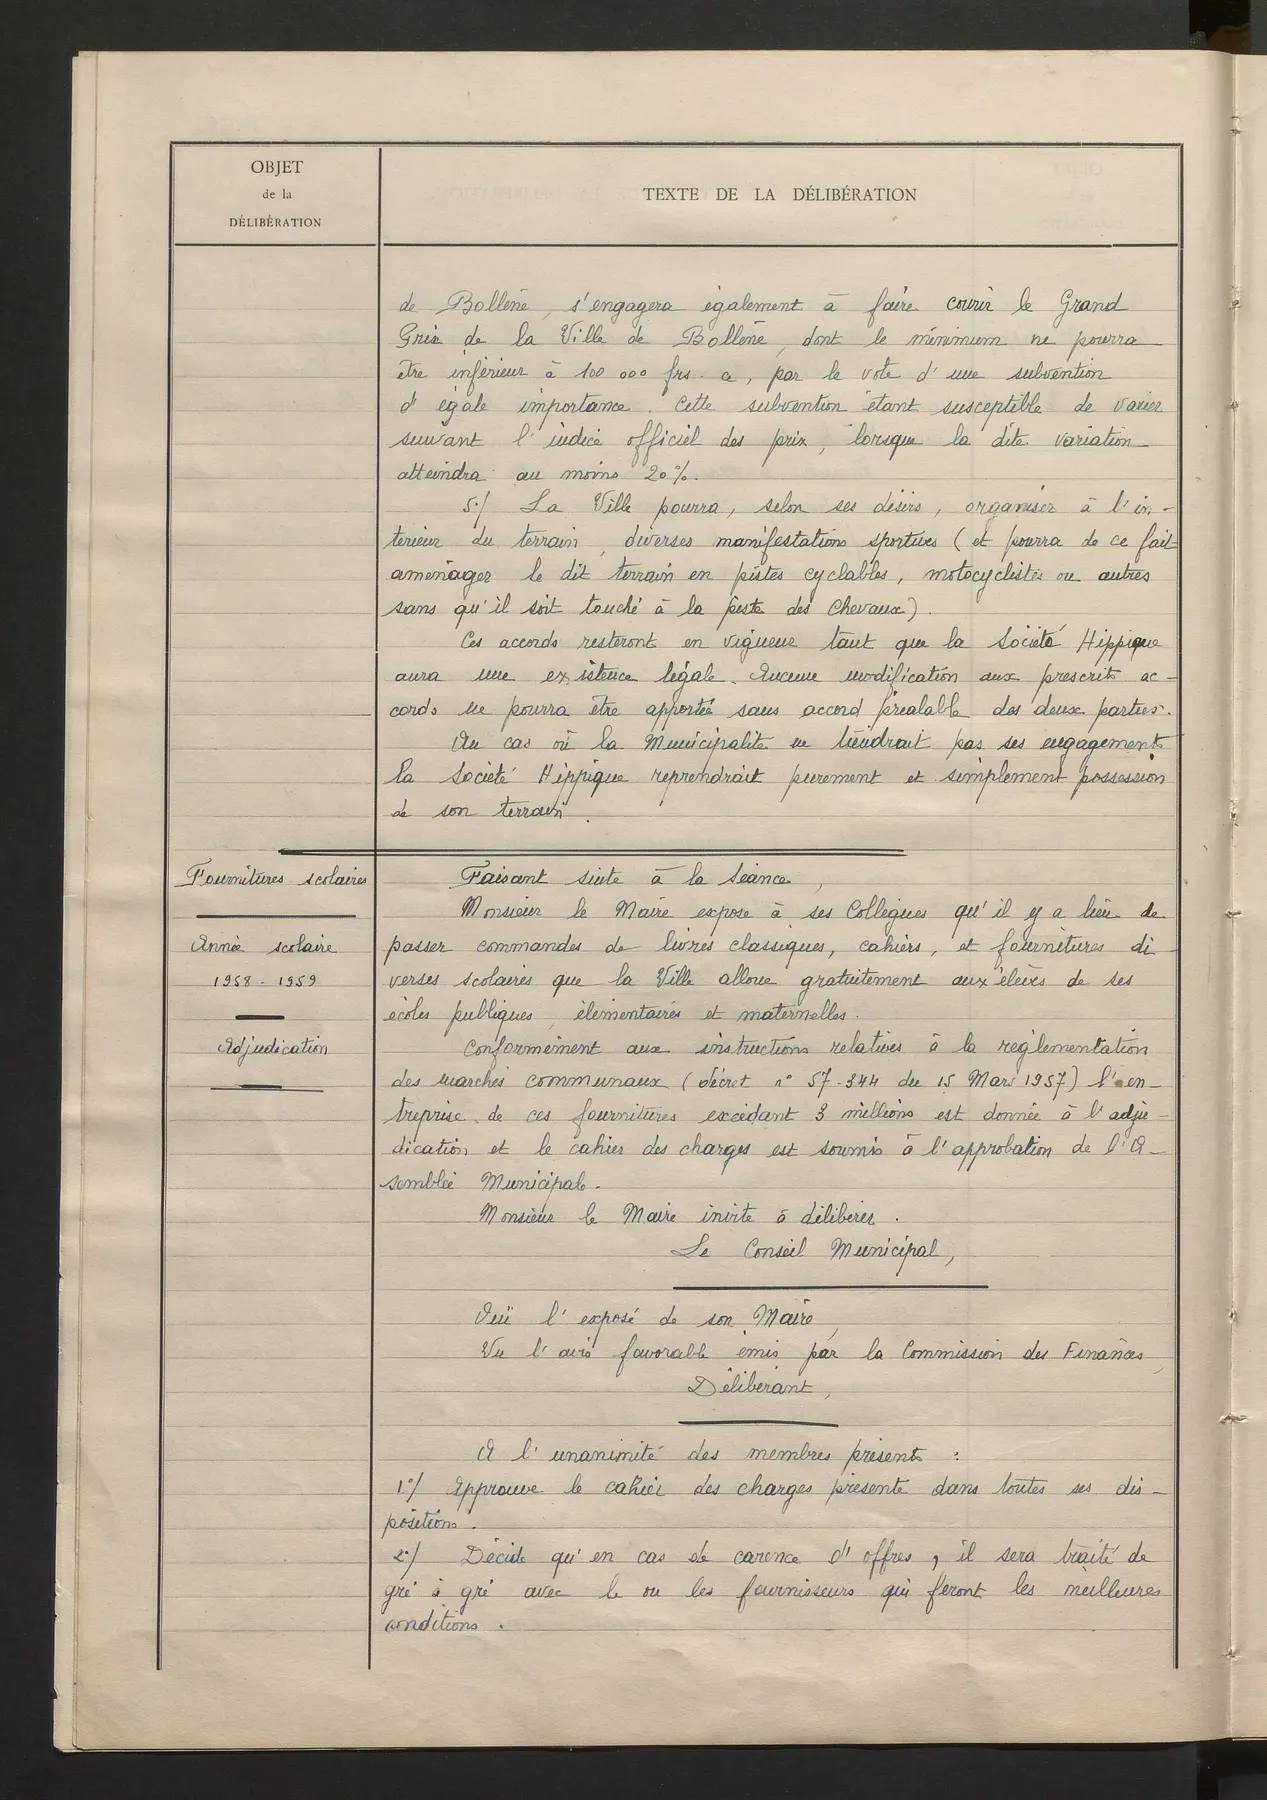 OBJET
de la
DÉLIBÉRATION
TEXTE DE LA DÉLIBÉRATION
de Bollène, s'engagera également à faire courir le Grand
Prix de la Ville de Bollène, dont le minimum ne pourra
être inférieur à 100 000 frs. a, par le vote d'une subvention
d'égale importance. Cette subvention étant susceptible de varier
suivant l'indice officiel des prix, lorsque la dite variation
atteindra au moins 20%.
5°/ La Ville pourra, selon ses désirs, organiser à l'in-
térieur du terrain, diverses manifestations sportives (et pourra de ce fait
aménager le dit terrain en pistes cyclables, motocyclistes ou autres
sans qu'il soit touché à la piste des Chevaux).
Ces accords resteront en vigueur tant que la Société Hippique
aura une existence légale. Aucune modification aux prescrits ac-
cords ne pourra être apportée sans accord préalable des deux parties.
Au cas où la Municipalité ne tiendrait pas ses engagements
la Société Hippique reprendrait purement et simplement possession
de son terrain.
Fournitures scolaires
Année scolaire
1958-1959
Adjudication
Faisant suite à la Séance,
Monsieur le Maire expose à ses Collègues qu'il y a lieu de
passer commandes de livres classiques, cahiers, et fournitures di-
verses scolaires que la Ville alloue gratuitement aux élèves de ses
écoles publiques, élémentaires et maternelles.
Conformément aux instructions relatives à la réglementation
des marchés communaux (décret n° 57-344 du 15 Mars 1957) l'en-
treprise de ces fournitures excédant 3 millions est donnée à l'adju-
dication et le cahier des charges est soumis à l'approbation de l'A-
semblée Municipale.
Monsieur le Maire invite à délibérer.
Le Conseil Municipal,
Ouï l'exposé de son Maire,
Vu l'avis favorable émis par la Commission des Finances,
Délibérant,
A l'unanimité des membres présents :
1°/ Approuve le cahier des charges présenté dans toutes ses dis-
positions.
2°/ Décide qu'en cas de carence d'offres, il sera traité de
gré à gré avec le ou les fournisseurs qui feront les meilleures
conditions.